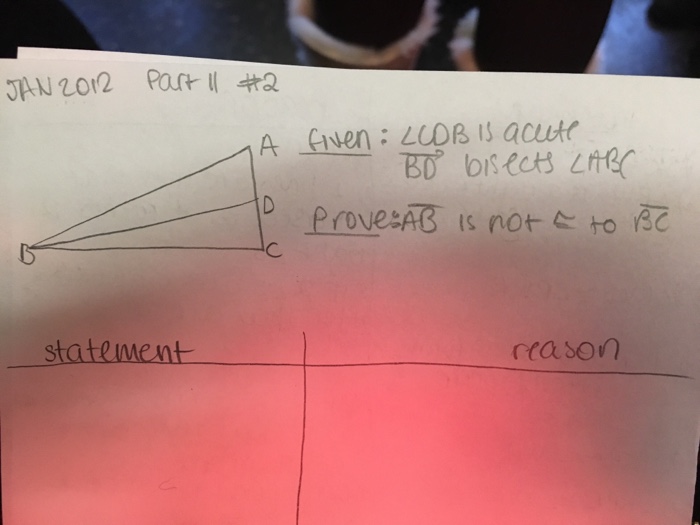 JAN 2012 Part II #2
A
D
B
C
Given: ∠CDB is acute
BD bisects ∠ABC
Prove: AB is not ≅ to BC
statement
reason